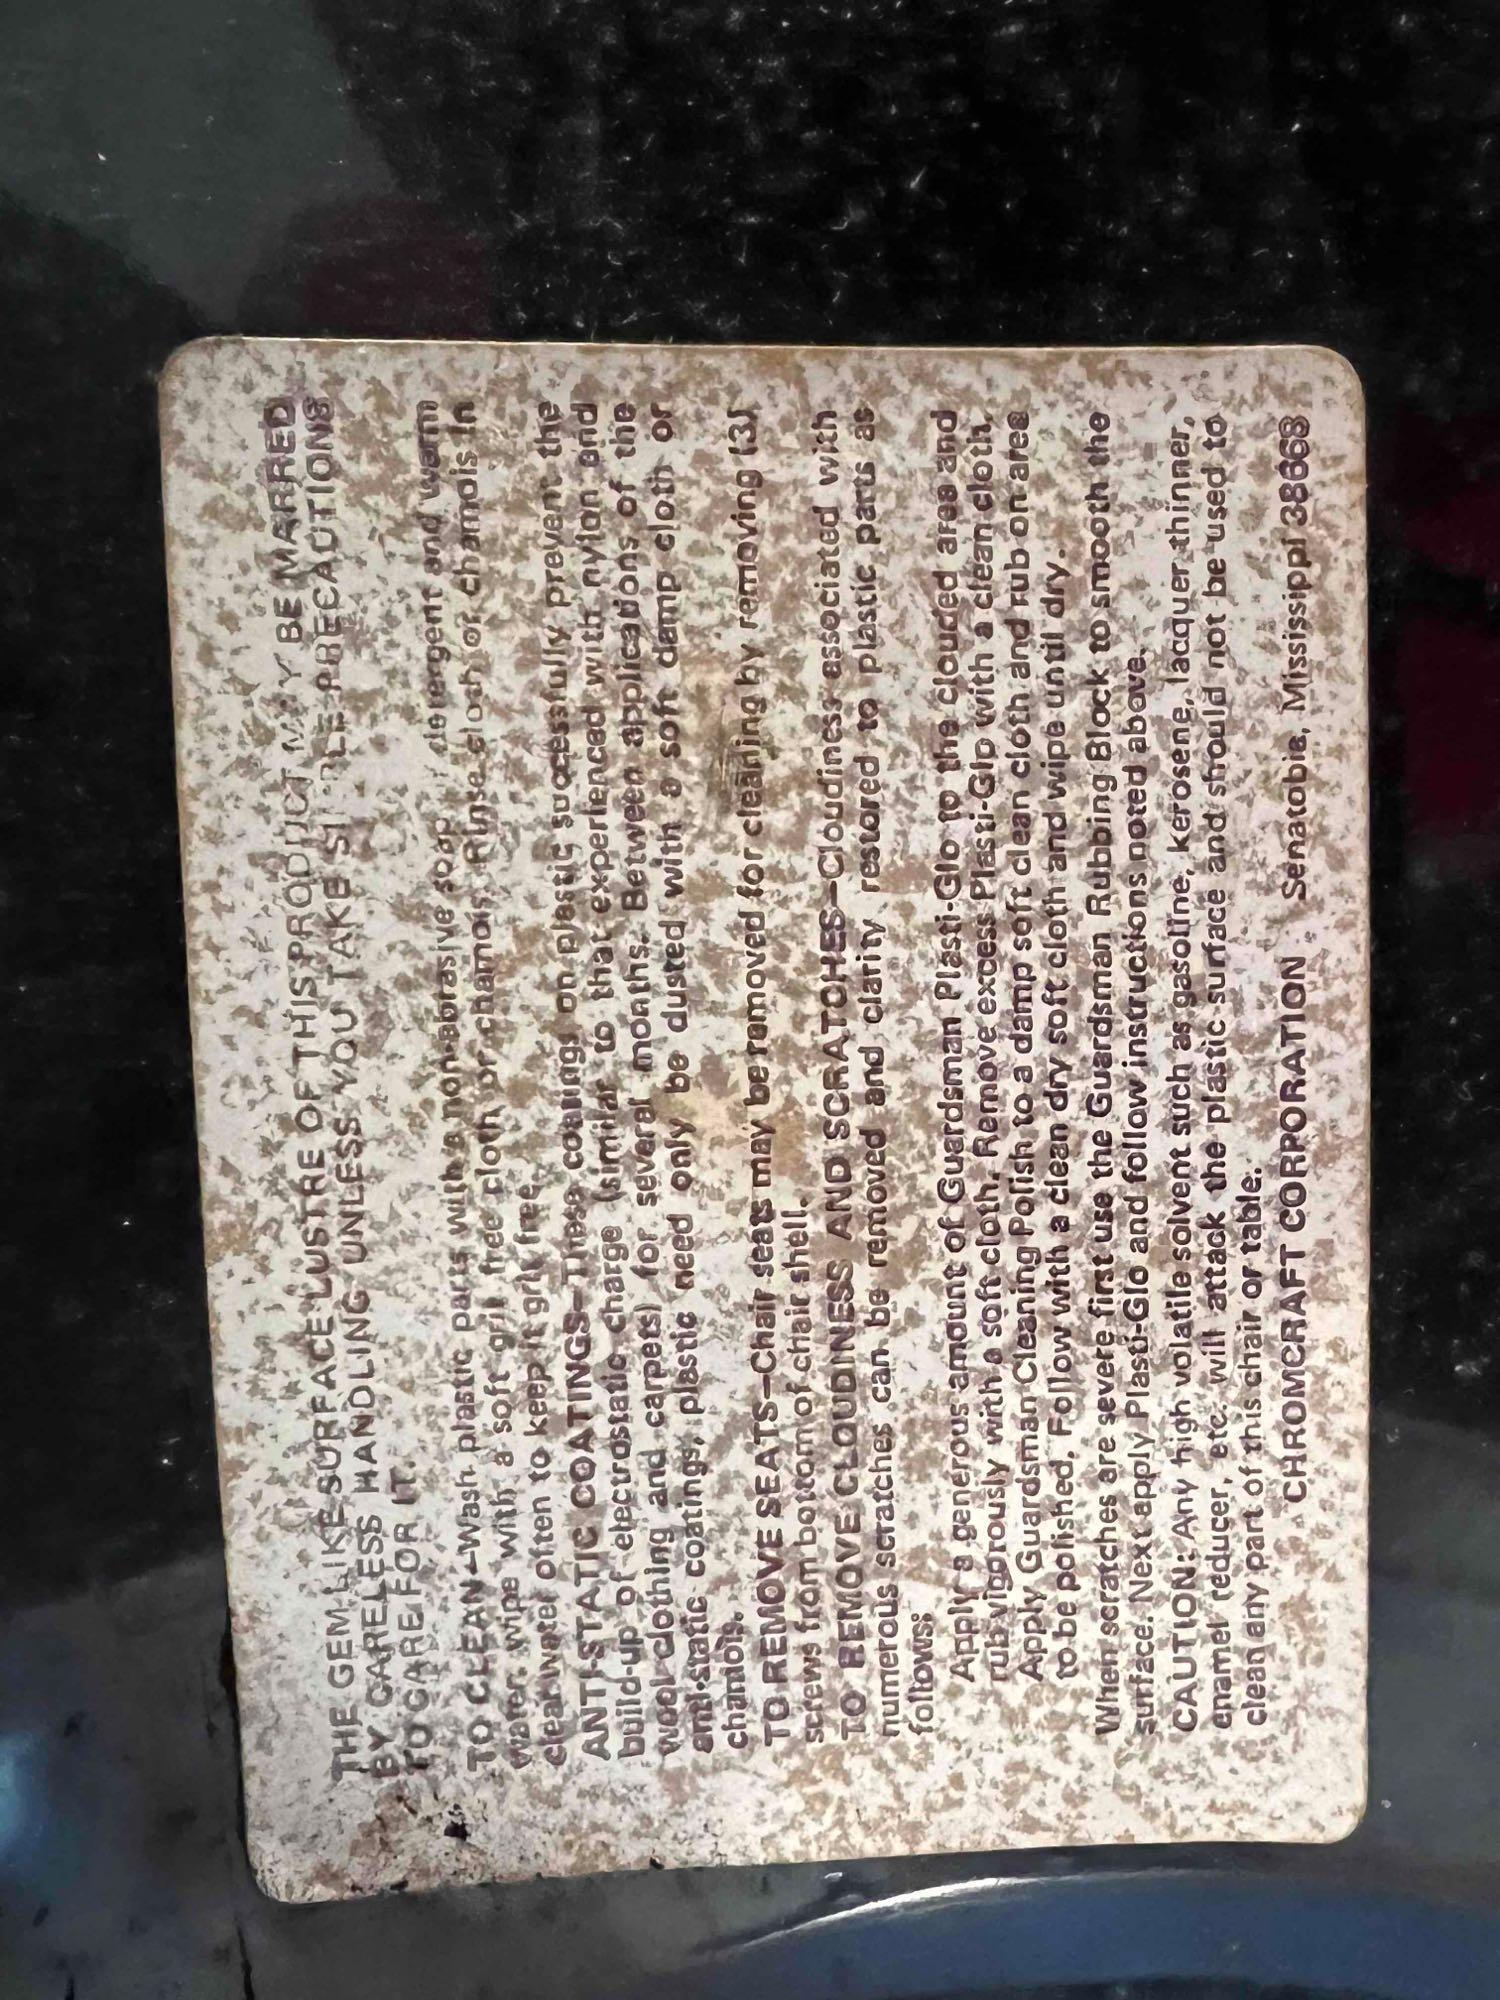 THE GEM-LIKE SURFACE LUSTRE OF THIS PRODUCT MAY BE MARRED
BY CARELESS HANDLING UNLESS YOU TAKE SIMPLE PRECAUTIONS
TO CARE FOR IT.
TO CLEAN—Wash plastic parts with a non-abrasive soap detergent and warm
water, wipe with a soft grit free cloth or chamois. Rinse cloth or chamois in
clear water often to keep it grit free.
ANTI-STATIC COATINGS—These coatings on plastic successfully prevent the
build-up of electrostatic charge (similar to that experienced with nylon and
wool clothing and carpets) for several months. Between applications of the
anti-static coatings, plastic need only be dusted with a soft damp cloth or
chamois.
TO REMOVE SEATS—Chair seats may be removed for cleaning by removing (3)
screws from bottom of chair shell.
TO REMOVE CLOUDINESS AND SCRATCHES—Cloudiness associated with
numerous scratches can be removed and clarity restored to plastic parts as
follows:
Apply a generous amount of Guardsman Plasti-Glo to the clouded area and
rub vigorously with a soft cloth. Remove excess Plasti-Glo with a clean cloth.
Apply Guardsman Cleaning Polish to a damp soft clean cloth and rub on area
to be polished. Follow with a clean dry soft cloth and wipe until dry.
When scratches are severe first use the Guardsman Rubbing Block to smooth the
surface. Next apply Plasti-Glo and follow instructions noted above.
CAUTION: Any high volatile solvent such as gasoline, kerosene, lacquer thinner,
enamel reducer, etc. will attack the plastic surface and should not be used to
clean any part of this chair or table.
CHROMCRAFT CORPORATION Senatobia, Mississippi 38668